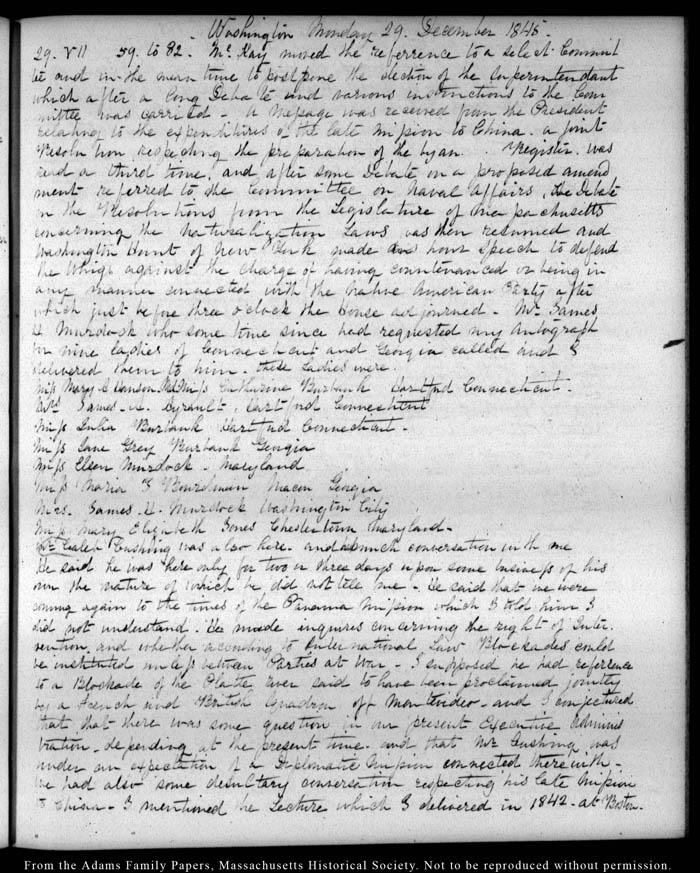 Washington Monday 29. December 1845.
29. VII 59. to 82. Mc. Kay moved the referrence to a select Commit
tee and in the mean time to postpone the election of the Superintendant
which after a long Debate and various instructions to the Com
mittee was carried – A Message was received from the President
relating to the expenditures of the late Mission to China. a joint
Resolution respecting the preparation of the Register. was
read a third time, and after some Debate on a proposed amend
ment referred to the Committee on Naval Affairs, the Debate
on the Resolutions from the Legislature of Massachusetts
concerning the Naturalization Laws was then resumed and
Washington Hunt of New York made hour speech to defend
the Whigs against the charge of having countenanced or being in
any manner connected with the Native American Party after
which just before three o'clock the House adjourned – Mr. James
U Murdock who some time since had requested my autograph
for nine ladies of Connecticut and Georgia called and I
delivered them to him. these Ladies were.
Miss Mary Miss Catharine Burbank Hartford Connecticut.
Mrs. James Hartford Connecticut
Miss Julia Burbank Hartford Connecticut.
Miss Jane Grey Burbank Georgia
Miss Ellen Murdock – Maryland
Miss Maria G Boardman Macon Georgia
Mrs. James U. Murdock Washington City
Miss Mary Elizabeth Jones Chestertown Maryland.
Mr Caleb Cushing was also here. and had much conversation with me
He said he was here only for two or three days upon some business of his
own the nature of which he did not tell me – He said that we were
coming again to the times of the Panama Mission which I told him I
did not understand. He made inquires concerning the right of Inter
vention. and whether according to International Law Blockades could
be instituted unless between Parties at War – I supposed he had reference
to a Blockade of the Platte river said to have been proclaimed jointly
by a French and British Squadron off Montevideo – and I conjectured
that that there was some question in our present Executive Adminis
tration. depending at the present time. and that Mr Cushing was
under an expectation of a Diplomatic Mission connected therewith –
We had also some desultary conversation respecting his late Mission
to China – I mentioned the Lecture which I delivered in 1842 – at Boston.
From the Adams Family Papers, Massachusetts Historical Society. Not to be reproduced without permission.